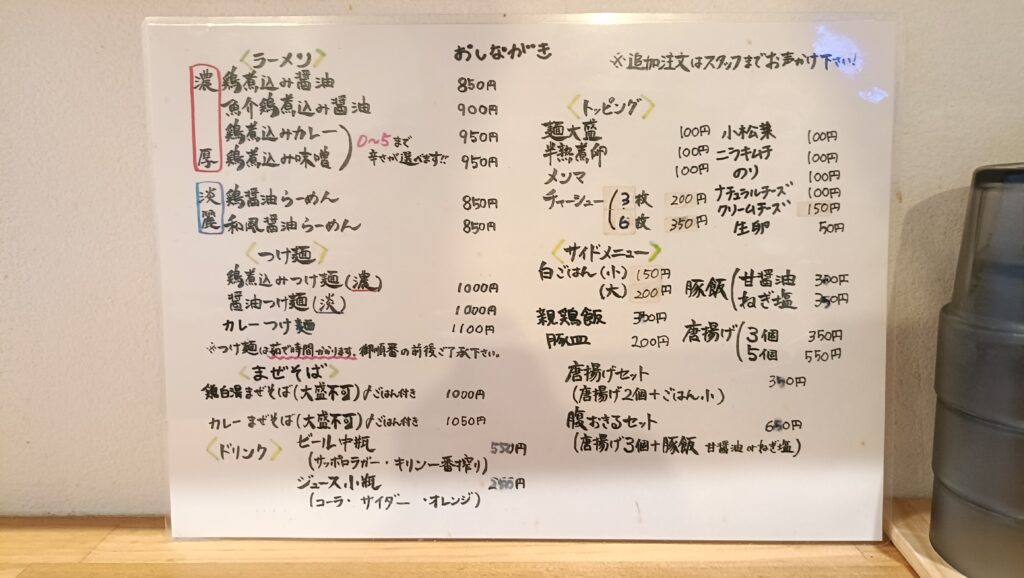 おしながき
※追加注文はスタッフまでお声かけ下さい!
〈ラーメン〉
濃厚
鶏煮込み醤油 850円
魚介鶏煮込み醤油 900円
鶏煮込みカレー 950円
鶏煮込み味噌 950円
0〜5まで
辛さが選べます!!
淡麗
鶏醤油らーめん 850円
和風醤油らーめん 850円
〈つけ麺〉
鶏煮込みつけ麺(濃) 1000円
醤油つけ麺(淡) 1000円
カレーつけ麺 1100円
※つけ麺は茹で時間かかります。御順番の前後ご了承下さい。
〈まぜそば〉
鶏白湯まぜそば(大盛不可)ごはん付き 1000円
カレーまぜそば(大盛不可)ごはん付き 1050円
〈ドリンク〉
ビール中瓶 550円
(サッポロラガー・キリン一番搾り)
ジュース小瓶 円
(コーラ・サイダー・オレンジ)
〈トッピング〉
麺大盛 100円
半熟煮卵 100円
メンマ 100円
チャーシュー(3枚 200円
6枚 350円
小松菜 100円
ニラキムチ 100円
のり 100円
ナチュラルチーズ 100円
クリームチーズ 150円
生卵 50円
〈サイドメニュー〉
白ごはん(小) 150円
(大) 200円
親鶏飯 350円
豚皿 200円
豚飯(甘醤油 350円
ねぎ塩 350円
唐揚げ(3個 350円
5個 550円
唐揚げセット 350円
(唐揚げ2個+ごはん小)
腹おきるセット 650円
(唐揚げ3個+豚飯 甘醤油orねぎ塩)